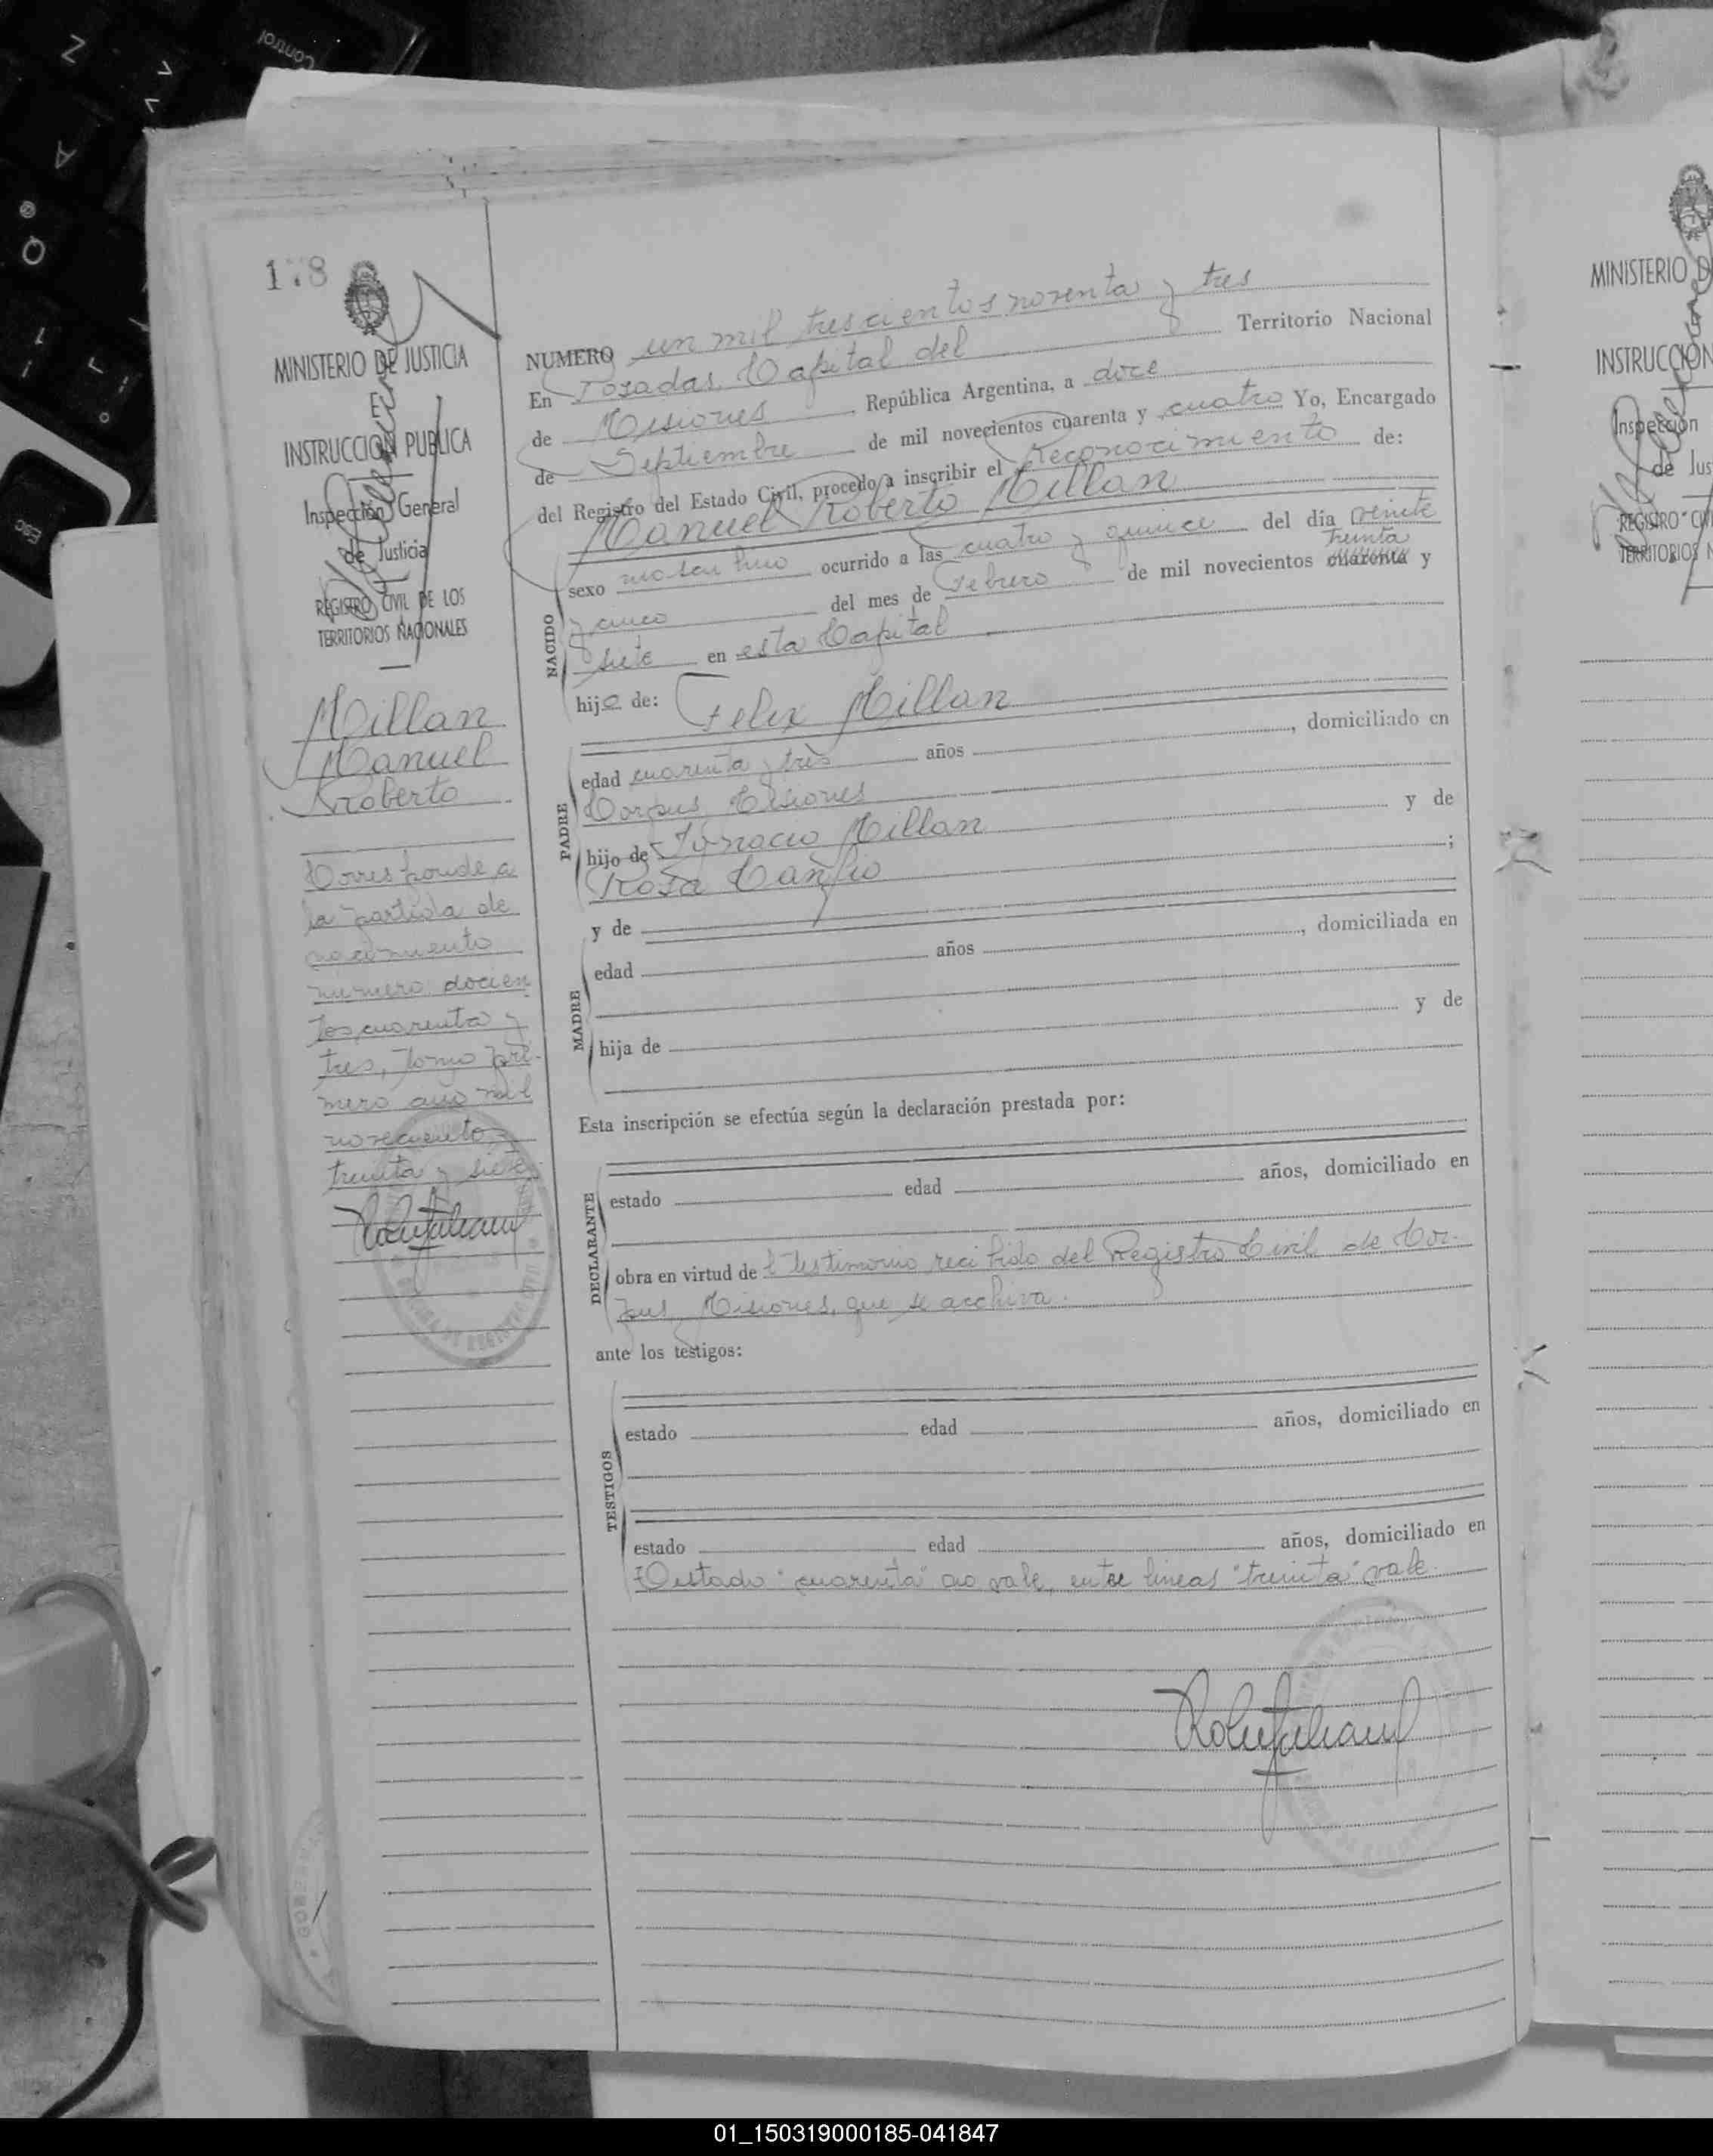 178
MINISTERIO DE JUSTICIA
E
INSTRUCCION PUBLICA
Inspección General
de Justicia
REGISTRO CIVIL DE LOS
TERRITORIOS NACIONALES
Millan
Manuel
Roberto
Corresponde a
la partida de
nacimiento
numero docien
tos cuarenta y
tres, Tomo pri-
mero año mil
novecientos
treinta y siete
NUMERO un mil trescientos noventa y tres
En Posadas, Capital del Territorio Nacional
de Misiones República Argentina, a doce
de Septiembre de mil novecientos cuarenta y cuatro Yo, Encargado
del Registro del Estado Civil, procedo a inscribir el Reconocimiento de:
Manuel Roberto Millan
NACIDO
sexo masculino ocurrido a las cuatro y quince del día veinte
treinta
y cinco del mes de Febrero de mil novecientos cuarenta y
siete en esta Capital
hijo de: Felix Millan
PADRE
edad cuarenta y tres años , domiciliado en
Corpus Misiones
hijo de Ignacio Millan y de
Rosa ;
y de
MADRE
edad años , domiciliada en
hija de y de
Esta inscripción se efectúa según la declaración prestada por:
DECLARANTE
estado edad años, domiciliado en
obra en virtud del Testimonio recibido del Registro Civil de Cor-
pus, Misiones, que se archiva.
ante los testigos:
TESTIGOS
estado edad años, domiciliado en
estado edad años, domiciliado en
Testado "cuarenta" no vale, entre lineas "treinta" vale.
MINISTERIO D
INSTRUCCION
Inspección
de Jus
REGISTRO CIV
TERRITORIOS N
Control
Z
A
Q
Esc
01_150319000185-041847